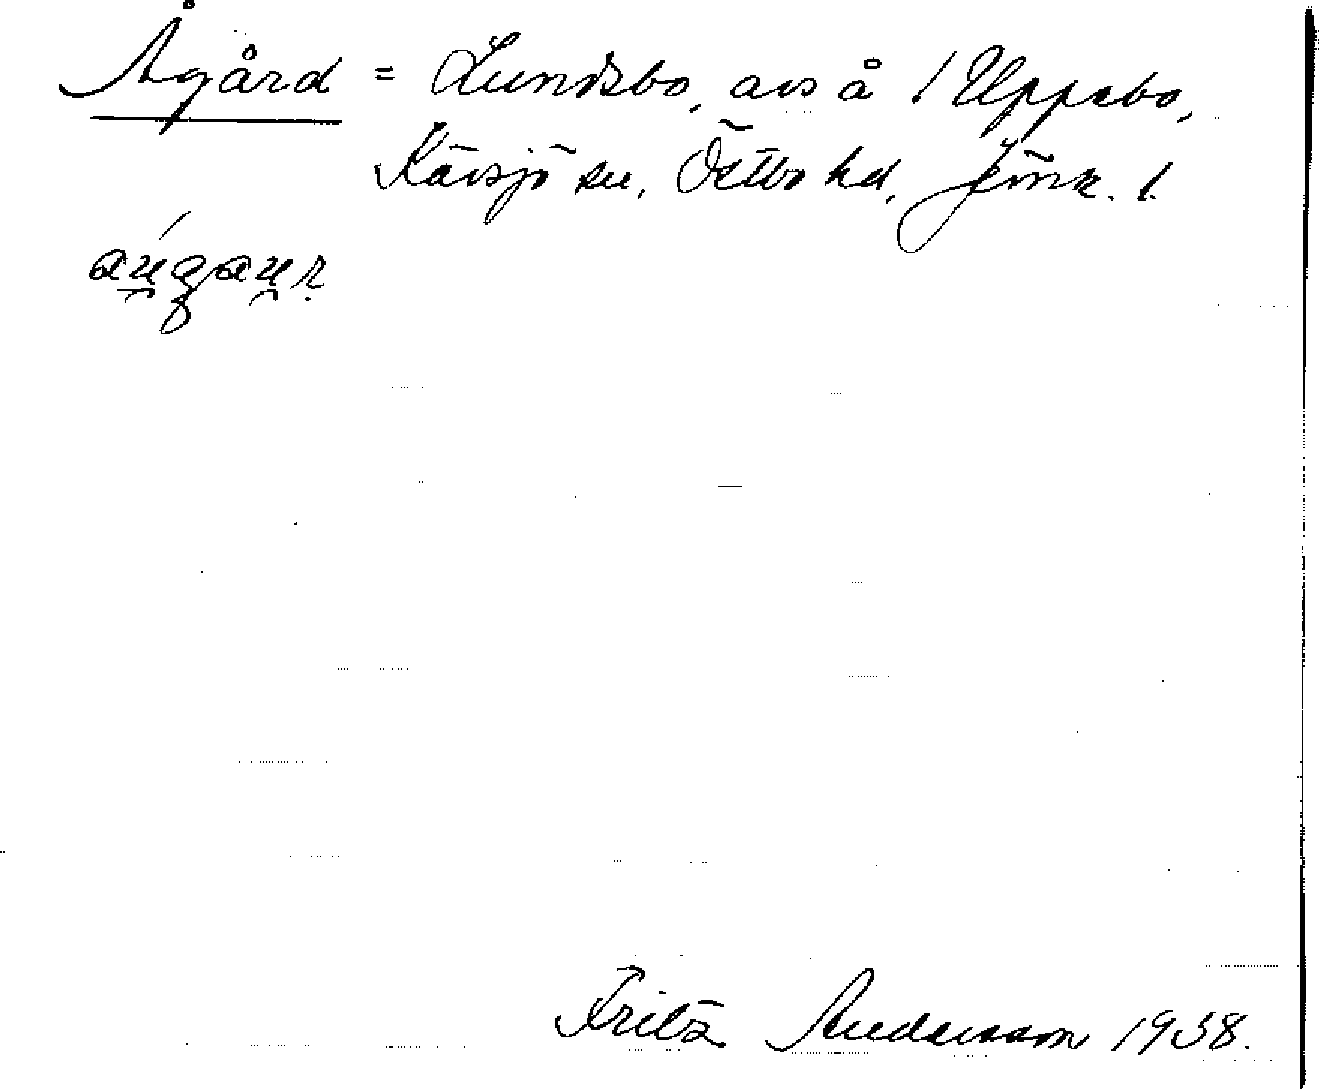 Ågård = Lundsbo, avs å 1 Uppebo,
Kävsjö sn, Östbo hd, Jönk. l.
Fritz Andersson 1938.